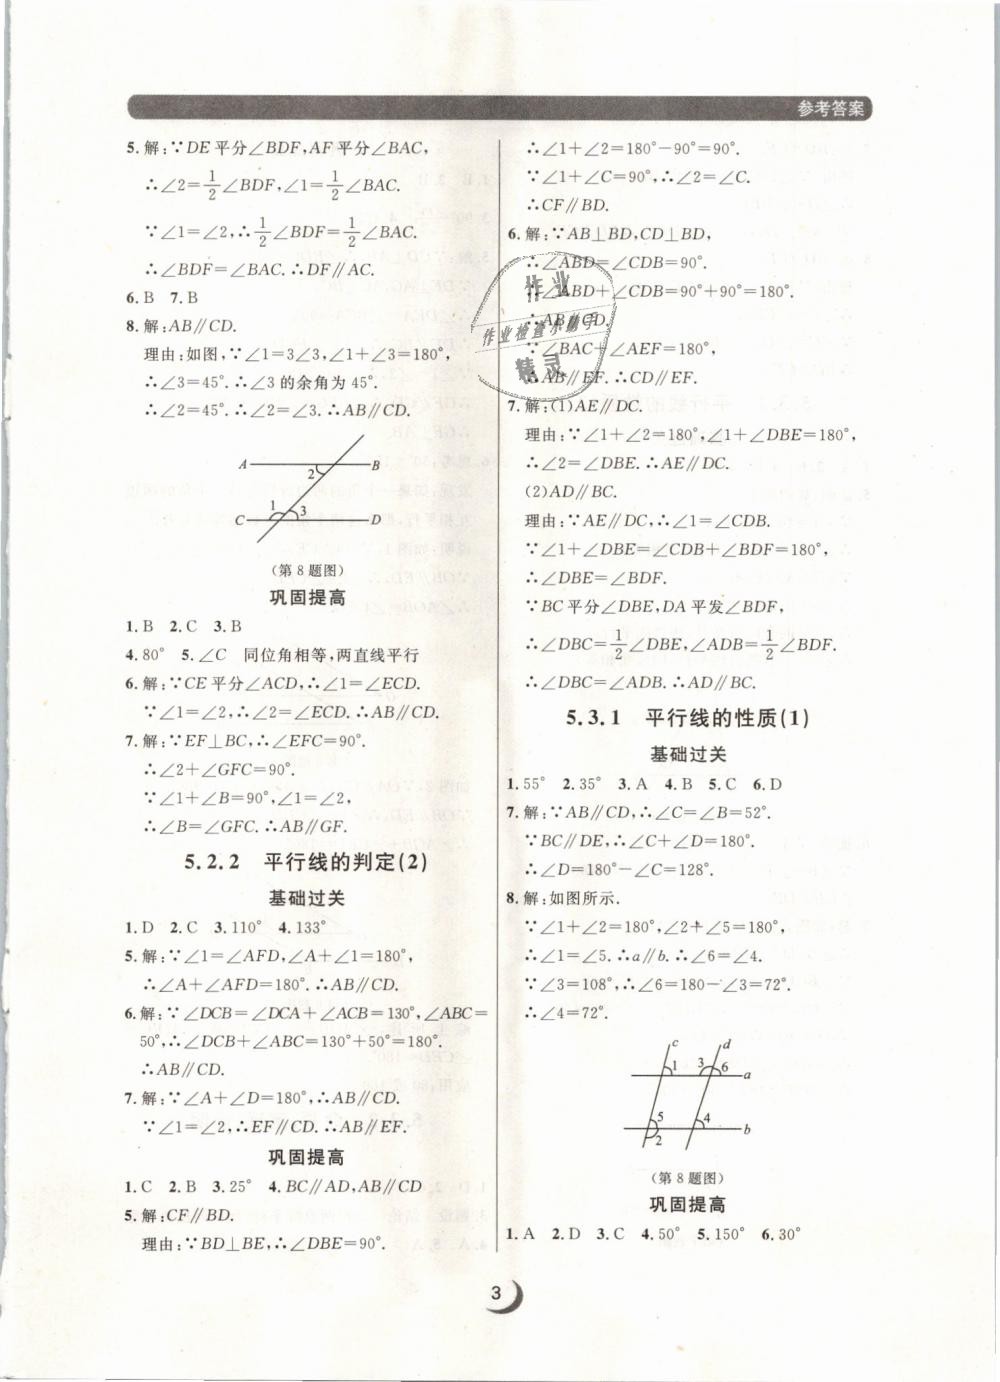 参考答案
5.解:∵DE平分∠BDF,AF平分∠BAC,
∴∠2=1/2∠BDF,∠1=1/2∠BAC.
∵∠1=∠2,∴1/2∠BDF=1/2∠BAC.
∴∠BDF=∠BAC.∴DF∥AC.
6.B 7.B
8.解:AB∥CD.
理由:如图,∵∠1=3∠3,∠1+∠3=180°,
∴∠3=45°.∴∠3的余角为45°.
∴∠2=45°.∴∠2=∠3.∴AB∥CD.
A B
2
1 3
C D
(第8题图)
巩固提高
1.B 2.C 3.B
4.80° 5.∠C 同位角相等,两直线平行
6.解:∵CE平分∠ACD,∴∠1=∠ECD.
∵∠1=∠2,∴∠2=∠ECD.∴AB∥CD.
7.解:∵EF⊥BC,∴∠EFC=90°.
∴∠2+∠GFC=90°.
∵∠1+∠B=90°,∠1=∠2,
∴∠B=∠GFC.∴AB∥GF.
5.2.2 平行线的判定(2)
基础过关
1.D 2.C 3.110° 4.133°
5.解:∵∠1=∠AFD,∠A+∠1=180°,
∴∠A+∠AFD=180°.∴AB∥CD.
6.解:∵∠DCB=∠DCA+∠ACB=130°,∠ABC=
50°,∴∠DCB+∠ABC=130°+50°=180°.
∴AB∥CD.
7.解:∵∠A+∠D=180°,∴AB∥CD.
∵∠1=∠2,∴EF∥CD.∴AB∥EF.
巩固提高
1.C 2.B 3.25° 4.BC∥AD,AB∥CD
5.解:CF∥BD.
理由:∵BD⊥BE,∴∠DBE=90°.
∴∠1+∠2=180°-90°=90°.
∵∠1+∠C=90°,∴∠2=∠C.
∴CF∥BD.
6.解:∵AB⊥BD,CD⊥BD,
∴∠ABD=∠CDB=90°.
∵∠ABD+∠CDB=90°+90°=180°.
∴AB∥CD.
∵∠BAC+∠AEF=180°,
∴AB∥EF.∴CD∥EF.
作业
作业检查小助手
精灵
7.解:(1)AE∥DC.
理由:∵∠1+∠2=180°,∠1+∠DBE=180°,
∴∠2=∠DBE.∴AE∥DC.
(2)AD∥BC.
理由:∵AE∥DC,∴∠1=∠CDB.
∵∠1+∠DBE=∠CDB+∠BDF=180°,
∴∠DBE=∠BDF.
∵BC平分∠DBE,DA平发∠BDF,
∴∠DBC=1/2∠DBE,∠ADB=1/2∠BDF.
∴∠DBC=∠ADB.∴AD∥BC.
5.3.1 平行线的性质(1)
基础过关
1.55° 2.35° 3.A 4.B 5.C 6.D
7.解:∵AB∥CD,∴∠C=∠B=52°.
∵BC∥DE,∴∠C+∠D=180°.
∴∠D=180°-∠C=128°.
8.解:如图所示.
∵∠1+∠2=180°,∠2+∠5=180°,
∴∠1=∠5.∴a∥b.∴∠6=∠4.
∵∠3=108°,∴∠6=180-∠3=72°.
∴∠4=72°.
c d
1 3 6 a
5 4 b
2
(第8题图)
巩固提高
1.A 2.D 3.C 4.50° 5.150° 6.30°
3